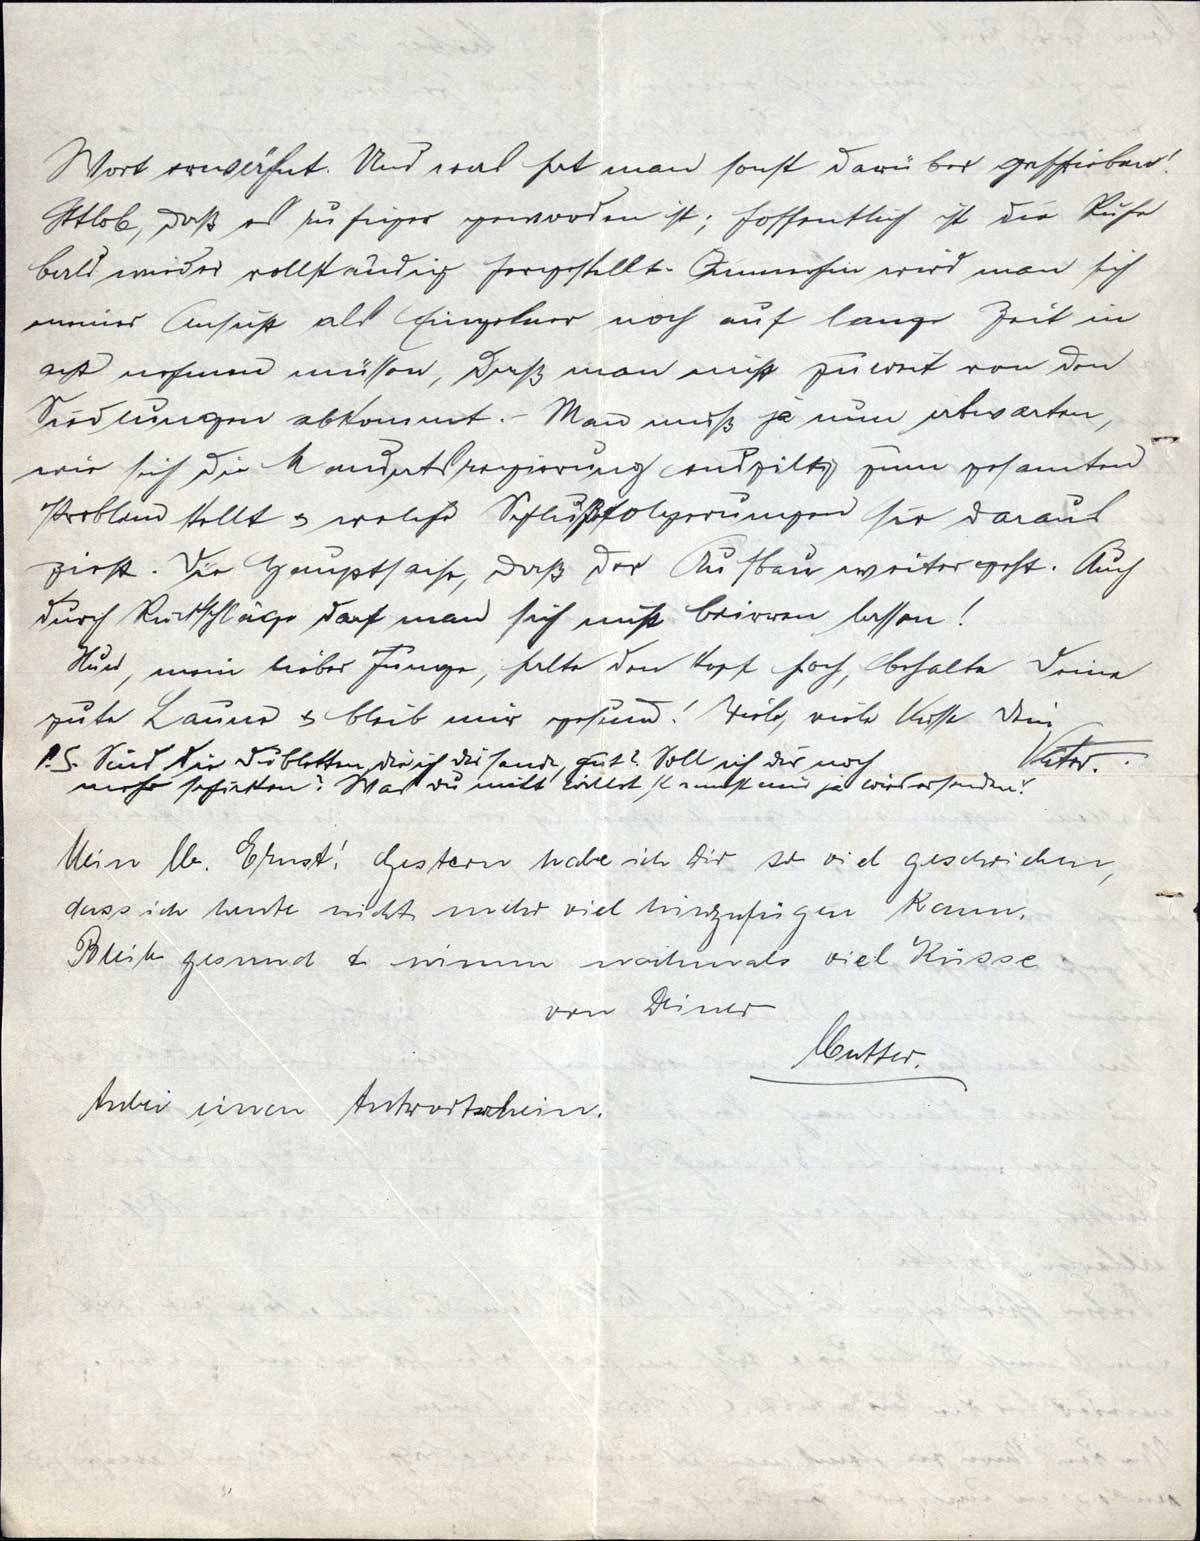 Wort erwähnt. Und was hat man sonst darüber geschrieben!
Gttlob, daß es ruhiger geworden ist; hoffentlich ist die Ruhe
bald wieder vollständig hergestellt. Immerhin wird man sich
meiner Ansicht als Einzelner noch auf lange Zeit in
acht nehmen müssen, daß man nicht zuweit von den
Siedlungen abkommt. – Man muß ja nun abwarten,
wie sich die Mandatsregierung endgiltig zum gesamten
Problem stellt & welche Schlußfolgerungen sie daraus
zieht. Die Hauptsache, daß der Aufbau weitergeht. Auch
durch Rückschläge darf man sich nicht beirren lassen!
Nun, mein lieber Junge, halte den Kopf hoch, behalte Deine
gute Laune & bleib mir gesund! Viele, viele Küsse Dein
Vater.
P.S. Sind die Dubletten, die ich dir sende, gut? Soll ich dir noch
mehr schicken? Was du nicht willst, kannst mir ja wiedersenden!
Mein lb. Ernst! Gestern habe ich Dir so viel geschrieben,
dass ich heute nicht mehr viel hinzufügen kann.
Bleib gesund & nimm nochmals viel Küsse
von Deiner
Mutter.
Anbei einen Antwortschein.